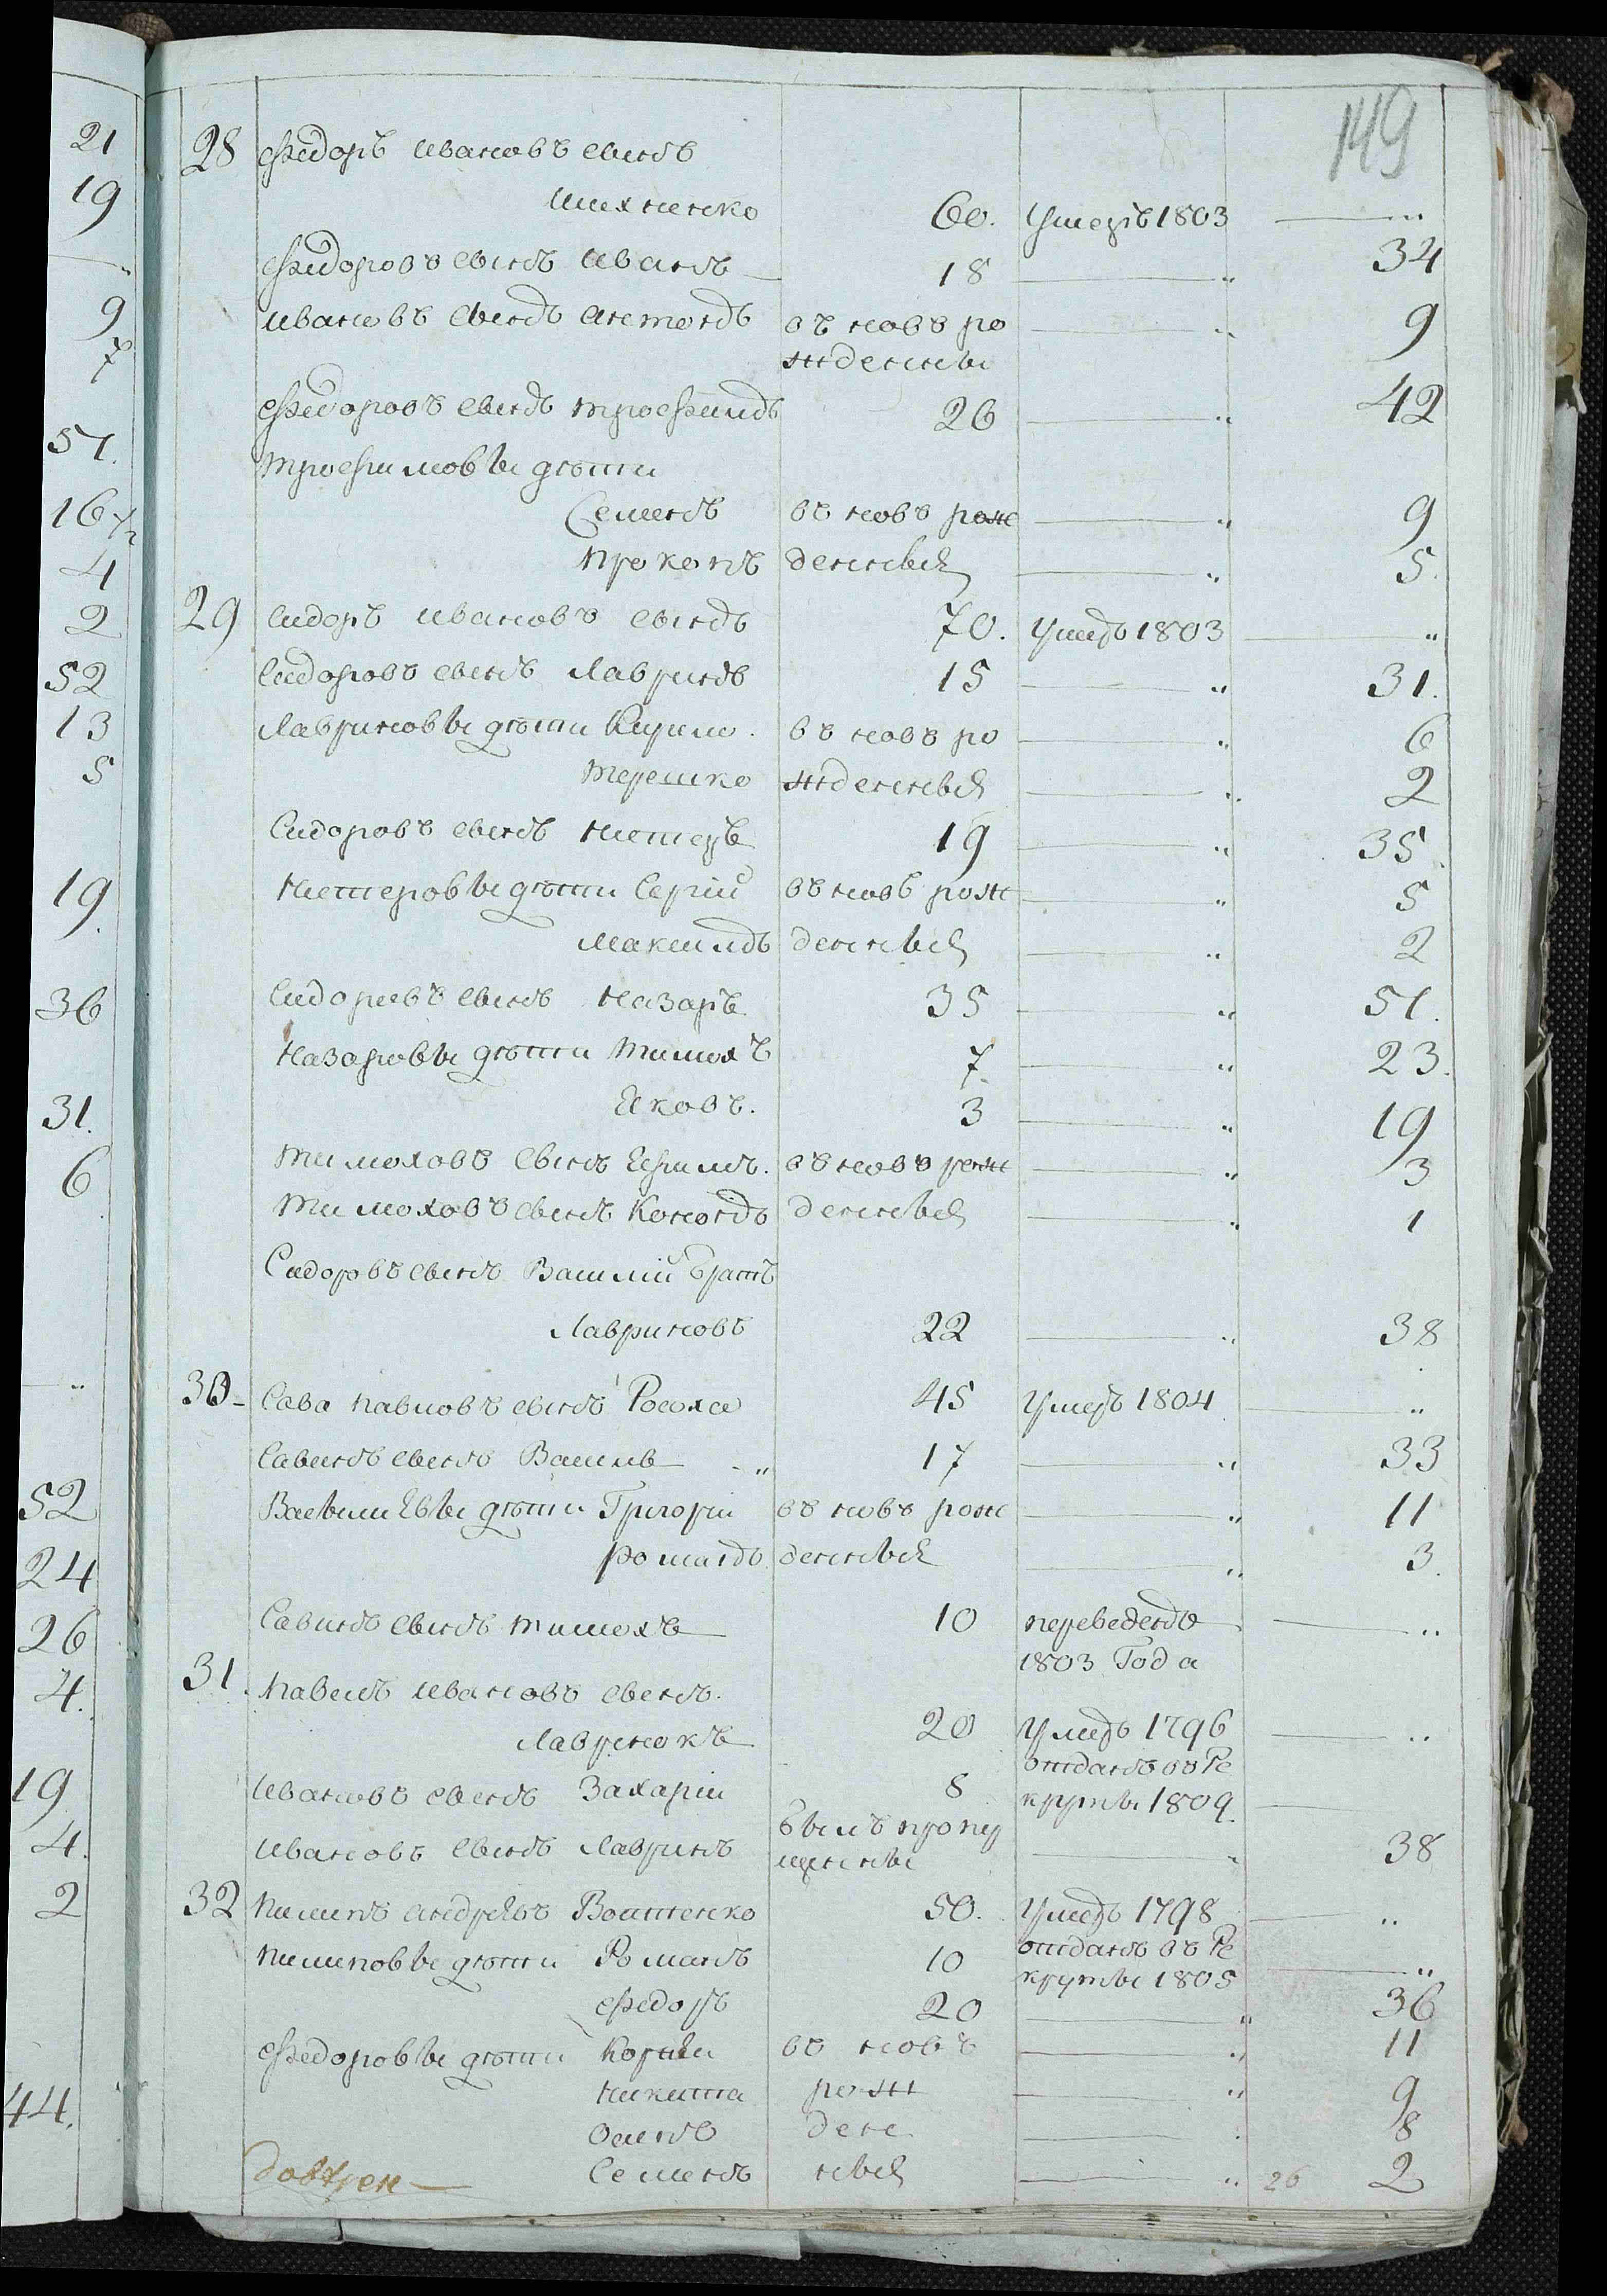 149
28 Федоръ Ивановъ сынъ
Михненко 60. Умеръ 1803 — "
Федоровъ сынъ Иванъ — 18 — " 34
Ивановъ сынъ Антонъ въ новъ ро — " 9
жденны
Федоровъ сынъ Трофимъ 26 — " 42
Трофимовы дѣти
Семенъ въ новъ рож — " 9
Прокопъ денныя — " 5.
29 Сидоръ Ивановъ сынъ 70. Умеръ 1803 — "
Сидоровъ сынъ Лавринъ 15 — " 31.
Лавриновы дѣти Кирило. въ новъ ро — " 6
Терешко жденныя — " 2
Сидоровъ сынъ Нестеръ 19 — " 35.
Нестеровы дѣти Сергій въ новъ рож — " 5
Максимъ денныя — " 2
Сидоровъ сынъ Назаръ 35 — " 51.
Назаровы дѣти Тимохъ 7. — " 23.
Яковъ. 3 — " 19
Тимоховъ сынъ Ефимъ. въ новъ рож — " 3
Тимоховъ сынъ Кононъ денныя — " 1
Сидоровъ сынъ Василій братъ
Лавриновъ 22 — " 38
30 Сава Павловъ сынъ 45 Умеръ 1804 — "
Савинъ сынъ Василь — " 17 — " 33
Васильевы дѣти Григорій въ новъ рож — " 11
Романъ денныя — " 3.
Савинъ сынъ Тимохъ 10 переведенъ — "
1803 Года
31. Павелъ Ивановъ сынъ.
Лавренокъ 20 Умеръ 1796 — "
отданъ въ Ре
Ивановъ сынъ Захарій 8 круты 1809. —
былъ пропу
Ивановъ сынъ Лавринъ щенны — " 38
32 Пилипъ Андреевъ 50. Умеръ 1798 — "
Пилиповы дѣти Романъ 10 отданъ въ Ре
круты 1805 — "
Федоръ 20 — " 36
Федоровы дѣти Корній въ новъ — " 11
Никита рож — " 9
Осипъ ден — 8
Семенъ ныя — " 26 2
21
19
— "
9
7
51.
16 1/2
4
2
52
13
5
19.
36
31.
6
— "
52
24
26
4.
19
4.
2
44.